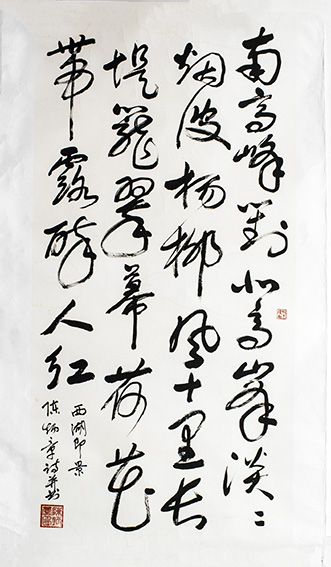 南高峰对北高峯淡〻
烟波杨柳风十里长
堤笼翠幕荷花
带露醉人红
西湖即景
陈炳章诗并书